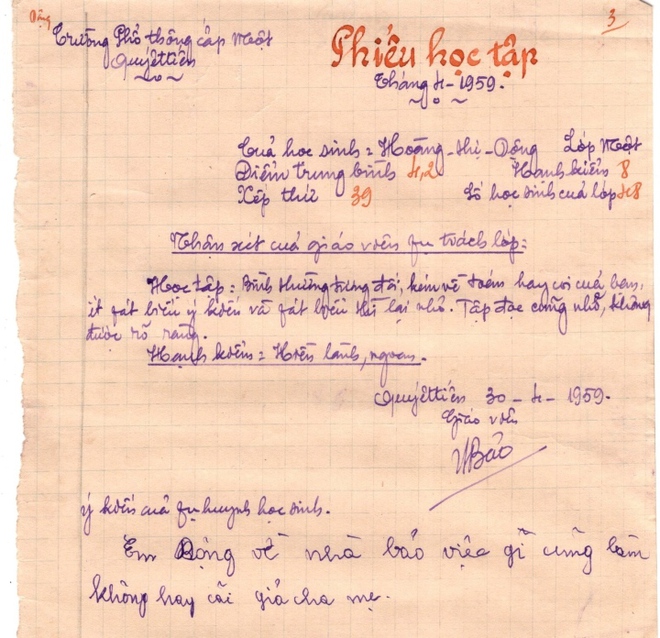 Động
3
Trường Phổ thông cấp Một
Quyết tiến
Phiếu học tập
Tháng 4 - 1959.
Cuả học sinh = Hoàng - thị - Động Lớp Một
Điểm trung bình 4,2 Hạnh kiểm 8
Xếp thứ 39 Số học sinh cuả lớp 48
Nhận xét cuả giáo viên fụ trách lớp:
Học tập: Bình thường, kém về toán hay coi cuả bạn,
ít fát biểu ý kiến và fát biểu thì lại nhỏ. Tập đọc cũng nhỏ, không
được rõ ràng.
Hạnh kiểm = Hiền lành, ngoan.
Quyết tiến 30 - 4 - 1959.
Giáo viên
Bảo
ý kiến cuả fụ huynh học sinh.
Em Động về nhà bảo việc gĩ cũng làm
không hay cãi giả cha mẹ.